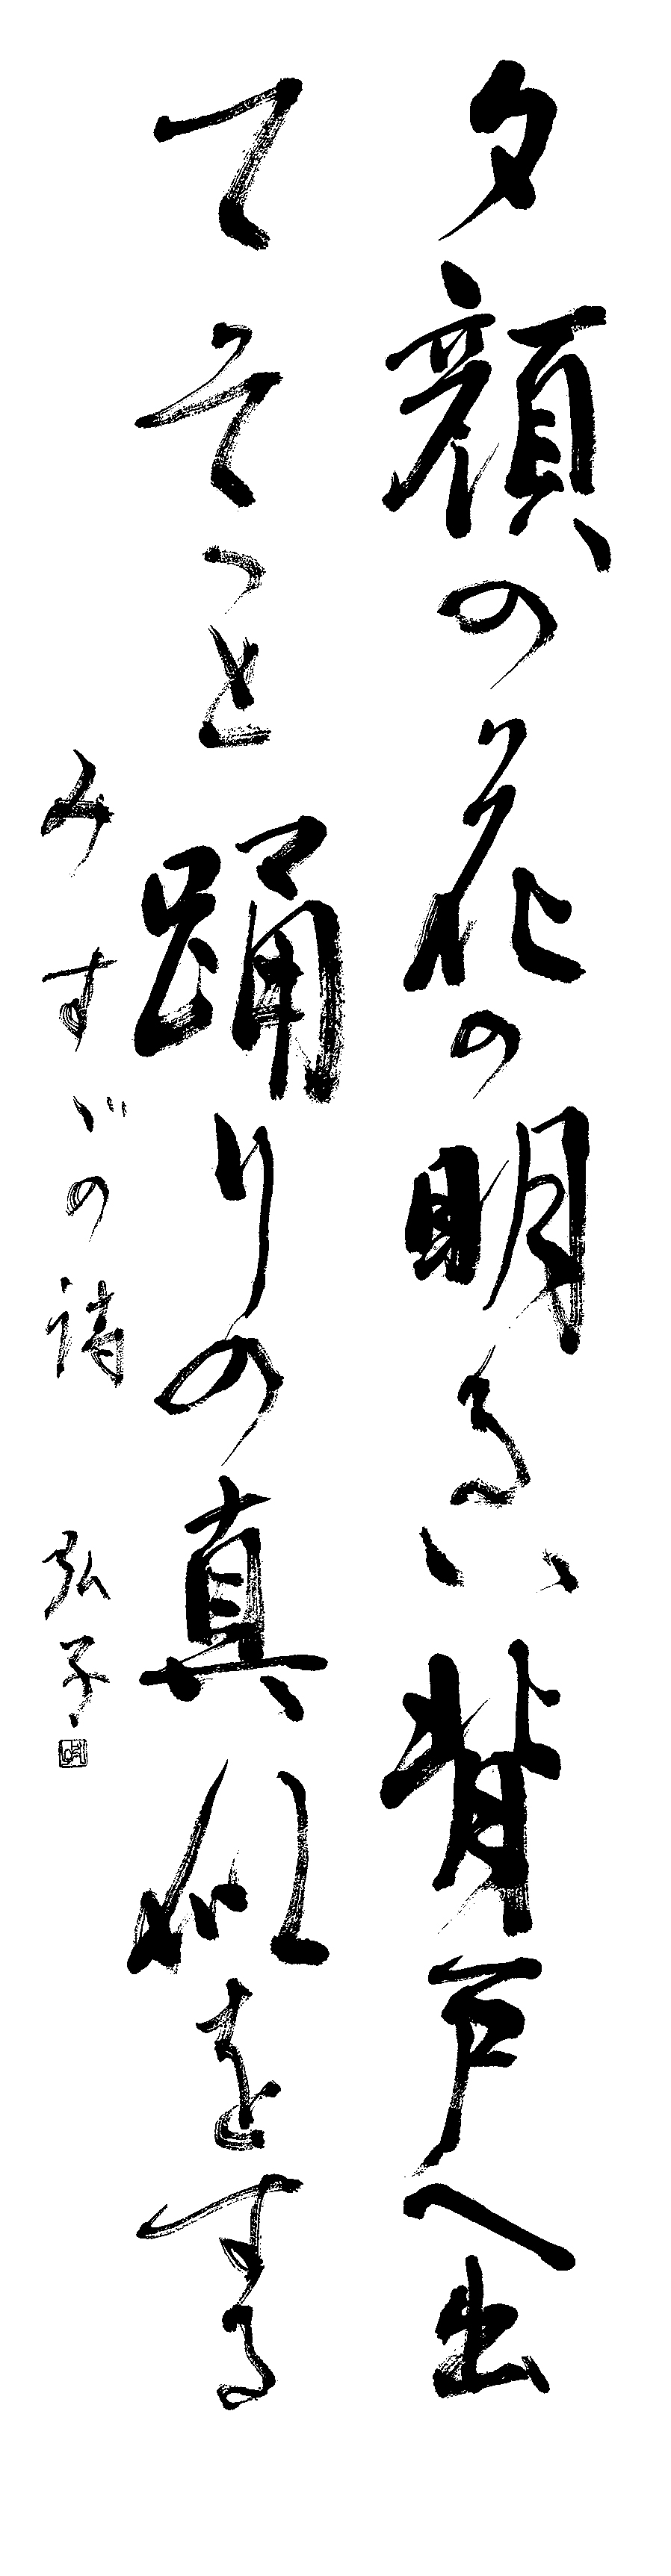 夕顔の花の明るい背戸へ出
てそっと踊りの真似をする
みすゞの詩 弘子